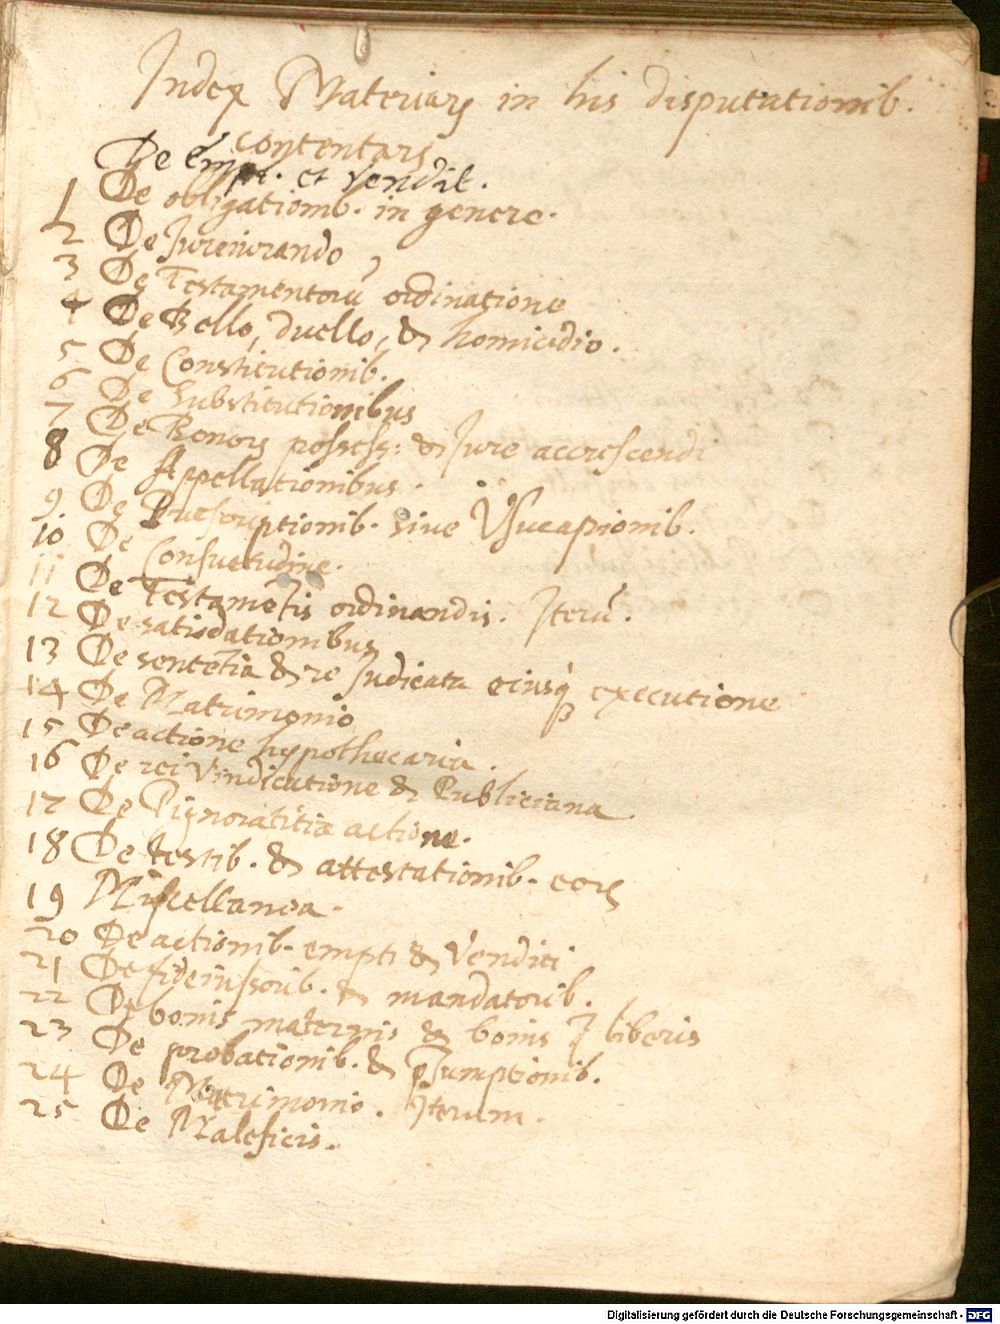 Index Materiarꝝ in his disputationib.
contentarꝝ
De empt. et vendit.
1 De obligationib. in genere.
2 De Jureiurando
3 De Testamentorū ordinatione
4 De Bello, duello, & homicidio.
5 De Constitutionib.
6 De Substitutionibus
7 De Bonorꝝ possess: & Jure accrescendi
8 De Appellationibus.
9 De Præscriptionib. sive Vsucapionib.
10 De Consuetudine.
11 De Testamētis ordinandis. Iterū.
12 De satisdationibus
13 De sentētia & re Judicata eiusq̢ executione
14 De Matrimonio
15 De actione hypothecaria.
16 De rei Vindicatione & Publiciana
17 De Pignoratitia actione.
18 De testib. & attestationib. eorꝝ
19 Miscellanea.
20 De actionib. empti & Venditi
21 De fideiussorib. & mandatorib.
22 De bonis maternis & bonis q̄ liberis
23 De probationib. & p̄sumptionib.
24 De Matrimonio. Iterum.
25 De Maleficiis.
Digitalisierung gefördert durch die Deutsche Forschungsgemeinschaft - DFG